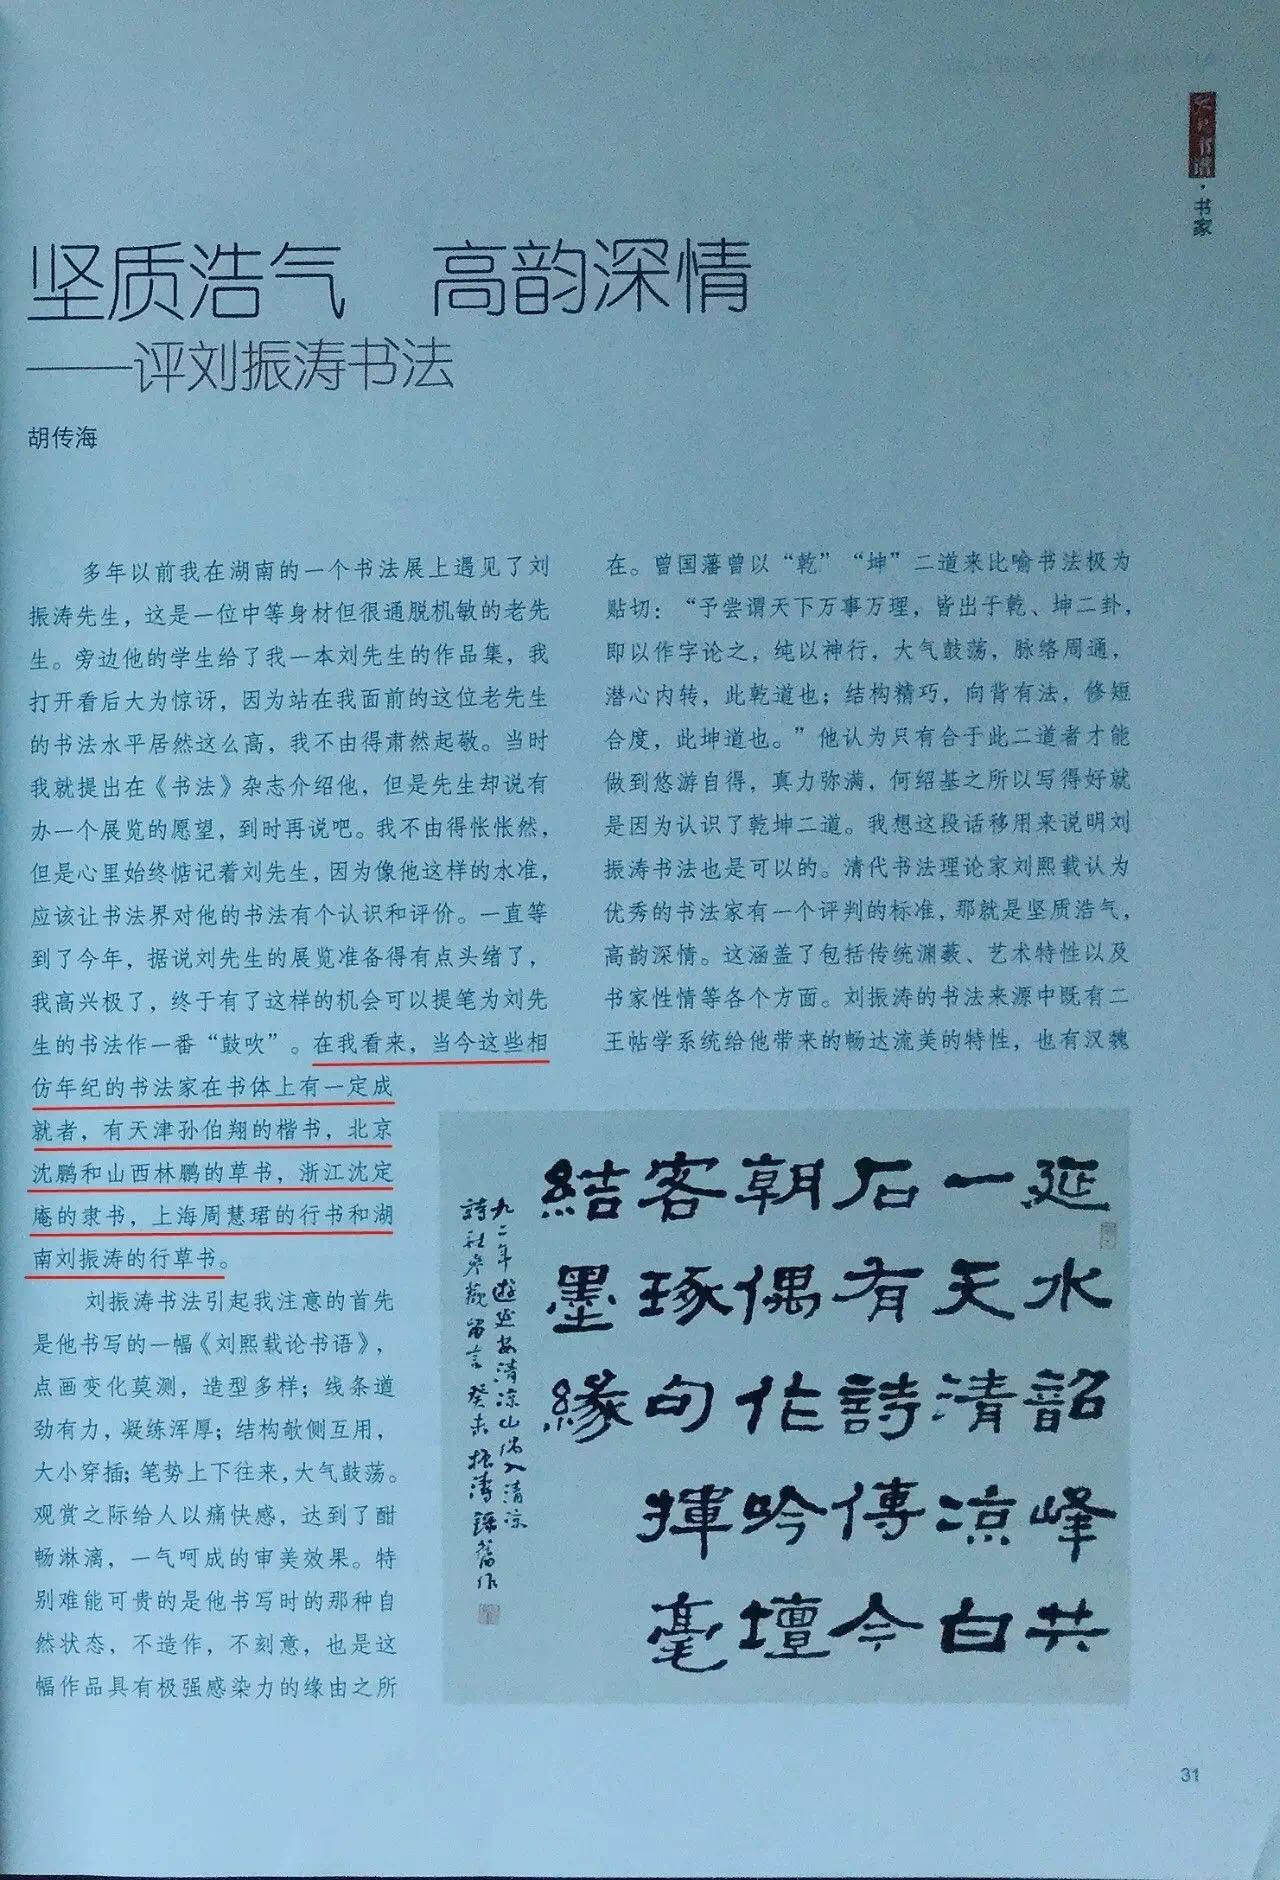 书家
坚质浩气 高韵深情
——评刘振涛书法
胡传海
多年以前我在湖南的一个书法展上遇见了刘
振涛先生，这是一位中等身材但很通脱机敏的老先
生。旁边他的学生给了我一本刘先生的作品集，我
打开看后大为惊讶，因为站在我面前的这位老先生
的书法水平居然这么高，我不由得肃然起敬。当时
我就提出在《书法》杂志介绍他，但是先生却说有
办一个展览的愿望，到时再说吧。我不由得怅怅然，
但是心里始终惦记着刘先生，因为像他这样的水准，
应该让书法界对他的书法有个认识和评价。一直等
到了今年，据说刘先生的展览准备得有点头绪了，
我高兴极了，终于有了这样的机会可以提笔为刘先
生的书法作一番“鼓吹”。在我看来，当今这些相
仿年纪的书法家在书体上有一定成
就者，有天津孙伯翔的楷书，北京
沈鹏和山西林鹏的草书，浙江沈定
庵的隶书，上海周慧珺的行书和湖
南刘振涛的行草书。
刘振涛书法引起我注意的首先
是他书写的一幅《刘熙载论书语》，
点画变化莫测，造型多样；线条遒
劲有力，凝练浑厚；结构欹侧互用，
大小穿插；笔势上下往来，大气鼓荡。
观赏之际给人以痛快感，达到了酣
畅淋漓，一气呵成的审美效果。特
别难能可贵的是他书写时的那种自
然状态，不造作，不刻意，也是这
幅作品具有极强感染力的缘由之所
在。曾国藩曾以“乾”“坤”二道来比喻书法极为
贴切：“予尝谓天下万事万理，皆出于乾、坤二卦，
即以作字论之，纯以神行，大气鼓荡，脉络周通，
潜心内转，此乾道也；结构精巧，向背有法，修短
合度，此坤道也。”他认为只有合于此二道者才能
做到悠游自得，真力弥满，何绍基之所以写得好就
是因为认识了乾坤二道。我想这段话移用来说明刘
振涛书法也是可以的。清代书法理论家刘熙载认为
优秀的书法家有一个评判的标准，那就是坚质浩气，
高韵深情。这涵盖了包括传统渊薮、艺术特性以及
书家性情等各个方面。刘振涛的书法来源中既有二
王帖学系统给他带来的畅达流美的特性，也有汉魏
延水韶峰共
一天清凉白
石有詩傳今
朝偶作吟壇
客琢句揮毫
結墨緣
九二年遊延安清凉山偶入清凉
詩社參觀留言癸未振濤錄舊作
31